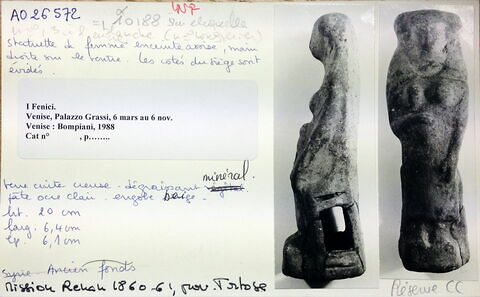 AO 26572
LNR
= L 20188 sur étiquette
Statuette de femme enceinte assise, main
droite sur le ventre. Les cotés du siège sont
évidés.
I Fenici.
Venise, Palazzo Grassi, 6 mars au 6 nov.
Venise : Bompiani, 1988
Cat n° , p........
minéral.
terre cuite creuse - dégraissant végétal
pâte ocre clair. engobe beige.
ht. 20 cm
larg. 6,4 cm
ep. 6,1 cm
Syrie - Ancien fonds
Mission Renan 1860-61, prov. Tortose
Réserve CC